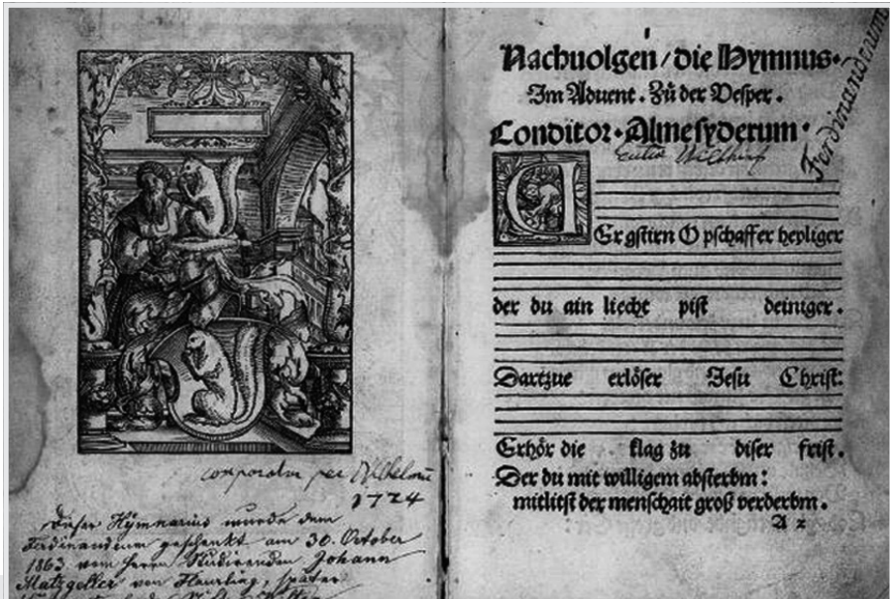 comparatu per Wilhelmū
1724
Dieser Hÿmnarius wurde dem
Ferdinandeum geschenkt am 30. October
1863 vom Herrn Studirenden Johann
Matzgeller von Flaurling, später
Nachuolgen / die Hymnus.
Im Aduent . Zů der Vesper .
Conditor . Alme syderum .
Ferdinandeum
Er gstirn O pschaffer heyliger
der du ain liecht pist deiniger .
Dartzue erlöser Jesu Christ:
Erhör die klag zu diser frist .
Der du mit willigem absterbm :
mitlitst der menschait groß verderbm .
A 2